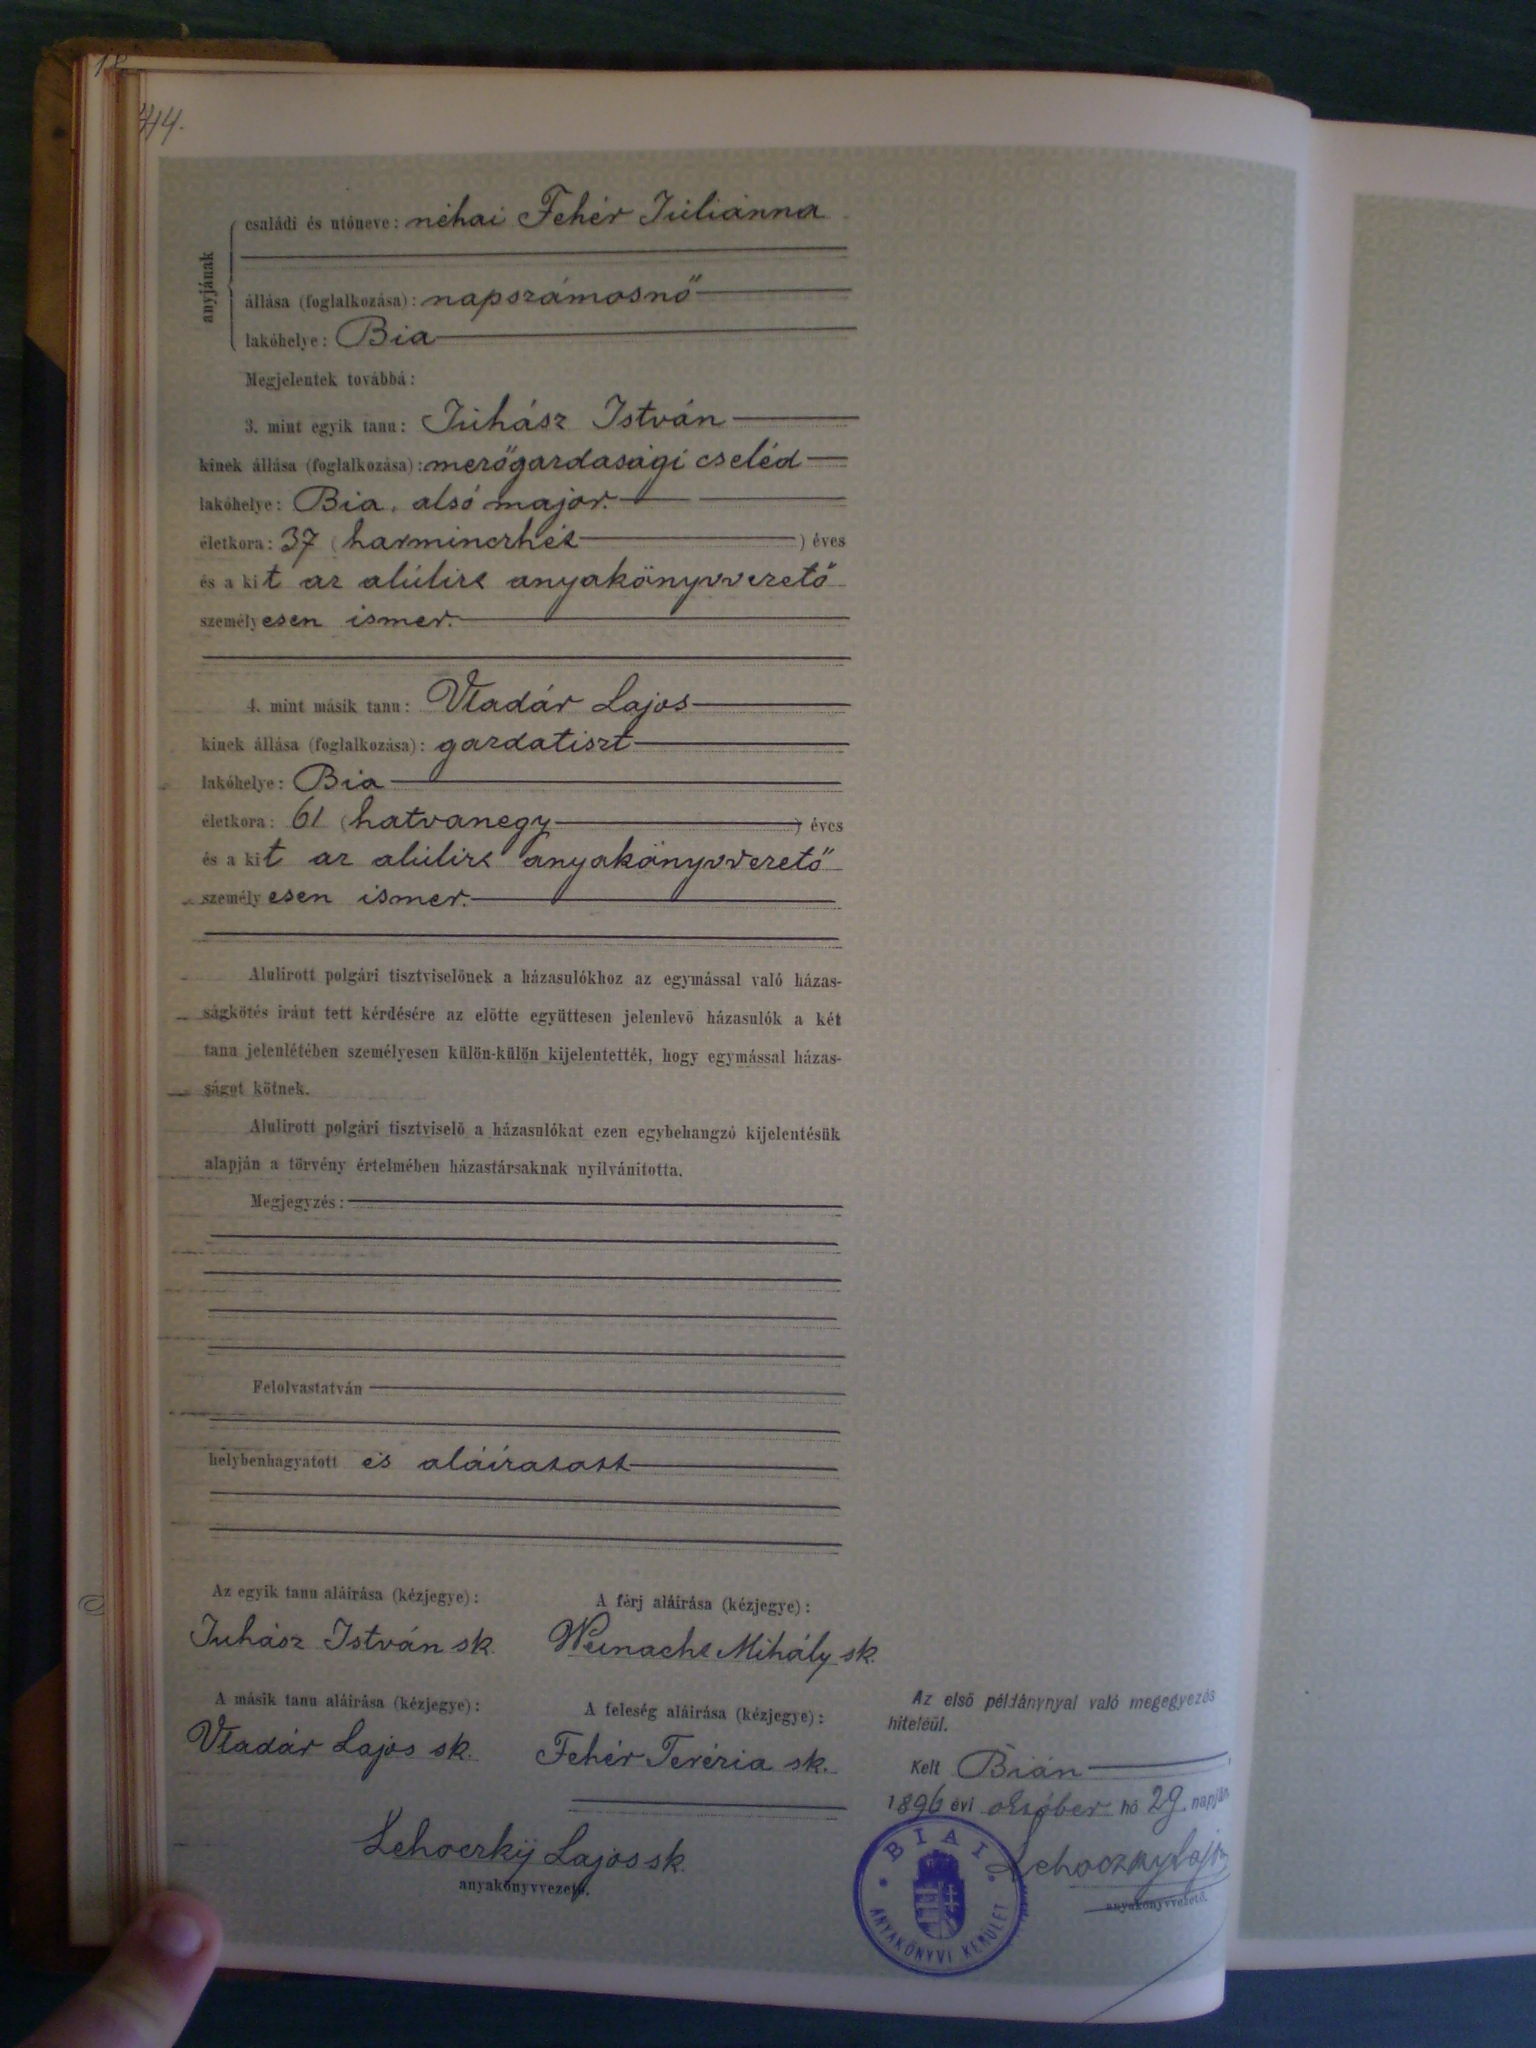 44.
anyjának
családi és utóneve: néhai Fehér Juliánna
állása (foglalkozása): napszámosnő
lakóhelye: Bia
Megjelentek továbbá:
3. mint egyik tanu: Juhász István
kinek állása (foglalkozása): mezőgazdasági cseléd
lakóhelye: Bia, alsó major.
életkora: 37 (harminczhét) éves
és a kit az alúlirt anyakönyvvezető
személyesen ismer.
4. mint másik tanu: Vladár Lajos
kinek állása (foglalkozása): gazdatiszt
lakóhelye: Bia
életkora: 61 (hatvanegy) éves
és a kit az alúlirt anyakönyvvezető
személyesen ismer.
Alulirott polgári tisztviselőnek a házasulókhoz az egymással való házas-
ságkötés iránt tett kérdésére az előtte együttesen jelenlevő házasulók a két
tanu jelenlétében személyesen külön-külön kijelentették, hogy egymással házas-
ságot kötnek.
Alulirott polgári tisztviselő a házasulókat ezen egybehangzó kijelentésük
alapján a törvény értelmében házastársaknak nyilvánitotta.
Megjegyzés:
Felolvastatván
helybenhagyatott és aláíratott
Az egyik tanu aláirása (kézjegye):
A férj aláirása (kézjegye):
Juhász István sk.
Weinacht Mihály sk.
A másik tanu aláirása (kézjegye):
A feleség aláirása (kézjegye):
Vladár Lajos sk.
Fehér Terézia sk.
Lehoczky Lajos sk.
anyakönyvvezető.
Az első példánynyal való megegyezés
hiteléül.
Kelt Bián
1896 évi október hó 29 napján
Lehoczky Lajos
anyakönyvvezető.
BIAI
ANYAKÖNYVI KERÜLET